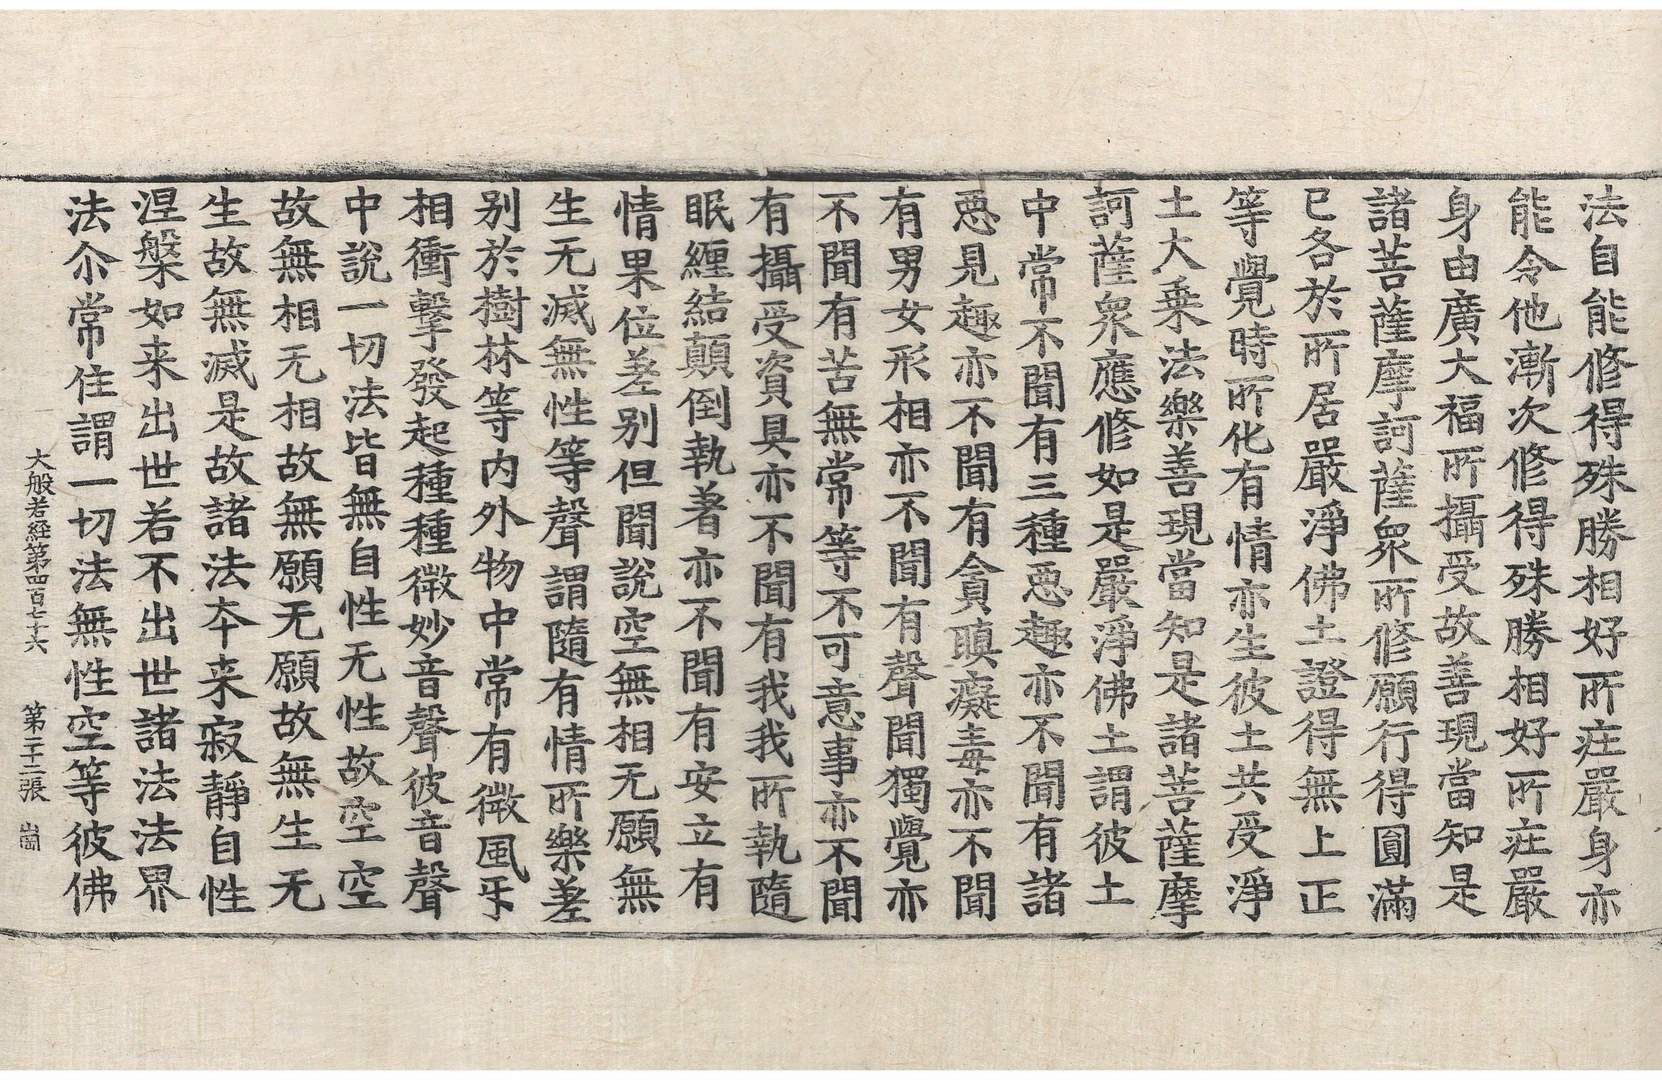 法自能修得殊勝相好所莊嚴身亦
能令他漸次修得殊勝相好所莊嚴
身由廣大福所攝受故善現當知是
諸菩薩摩訶薩衆所修願行得圓滿
已各於所居嚴淨佛土證得無上正
等覺時所化有情亦生彼土共受淨
土大乗法樂善現當知是諸菩薩摩
訶薩衆應修如是嚴淨佛土謂彼土
中常不聞有三種惡趣亦不聞有諸
惡見趣亦不聞有貪瞋癡毒亦不聞
有男女形相亦不聞有聲聞獨覺亦
不聞有苦無常等不可意事亦不聞
有攝受資具亦不聞有我我所執隨
眠纏結顛倒執著亦不聞有安立有
情果位差别但聞說空無相无願無
生无滅無性等聲謂隨有情所樂差
别於樹林等内外物中常有微風㸦
相衝擊發起種種微妙音聲彼音聲
中說一切法皆無自性无性故空空
故無相无相故無願无願故無生无
生故無滅是故諸法夲来寂靜自性
涅槃如来出世若不出世諸法法界
法尒常住謂一切法無性空等彼佛
大般若經第四百七十六 第二十二張 崗